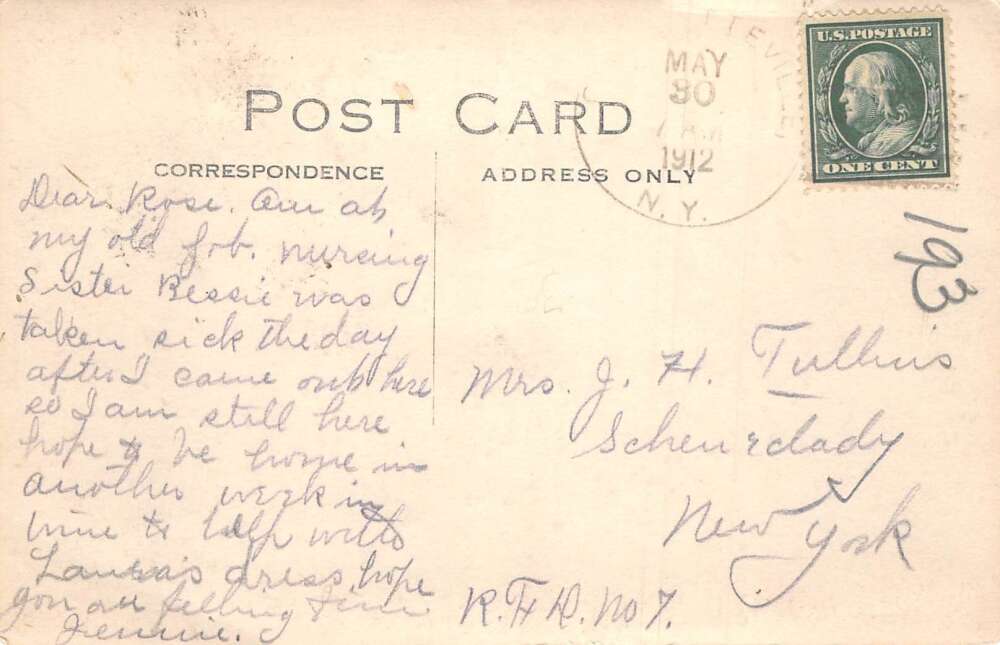 POST CARD
CORRESPONDENCE
ADDRESS ONLY
MAY
30
1912
N.Y.
U.S. POSTAGE
ONE CENT
193
Dear Rose. Am at
my old job. nursing
Sister Bessie was
taken sick the day
after I came out here
so I am still here
hope to be home in
another week in
time to help with
dress hope
you are feeling fine
Jennie.
Mrs. J. H. Tullius
Schenectady
New York
R.F.D. No 7.